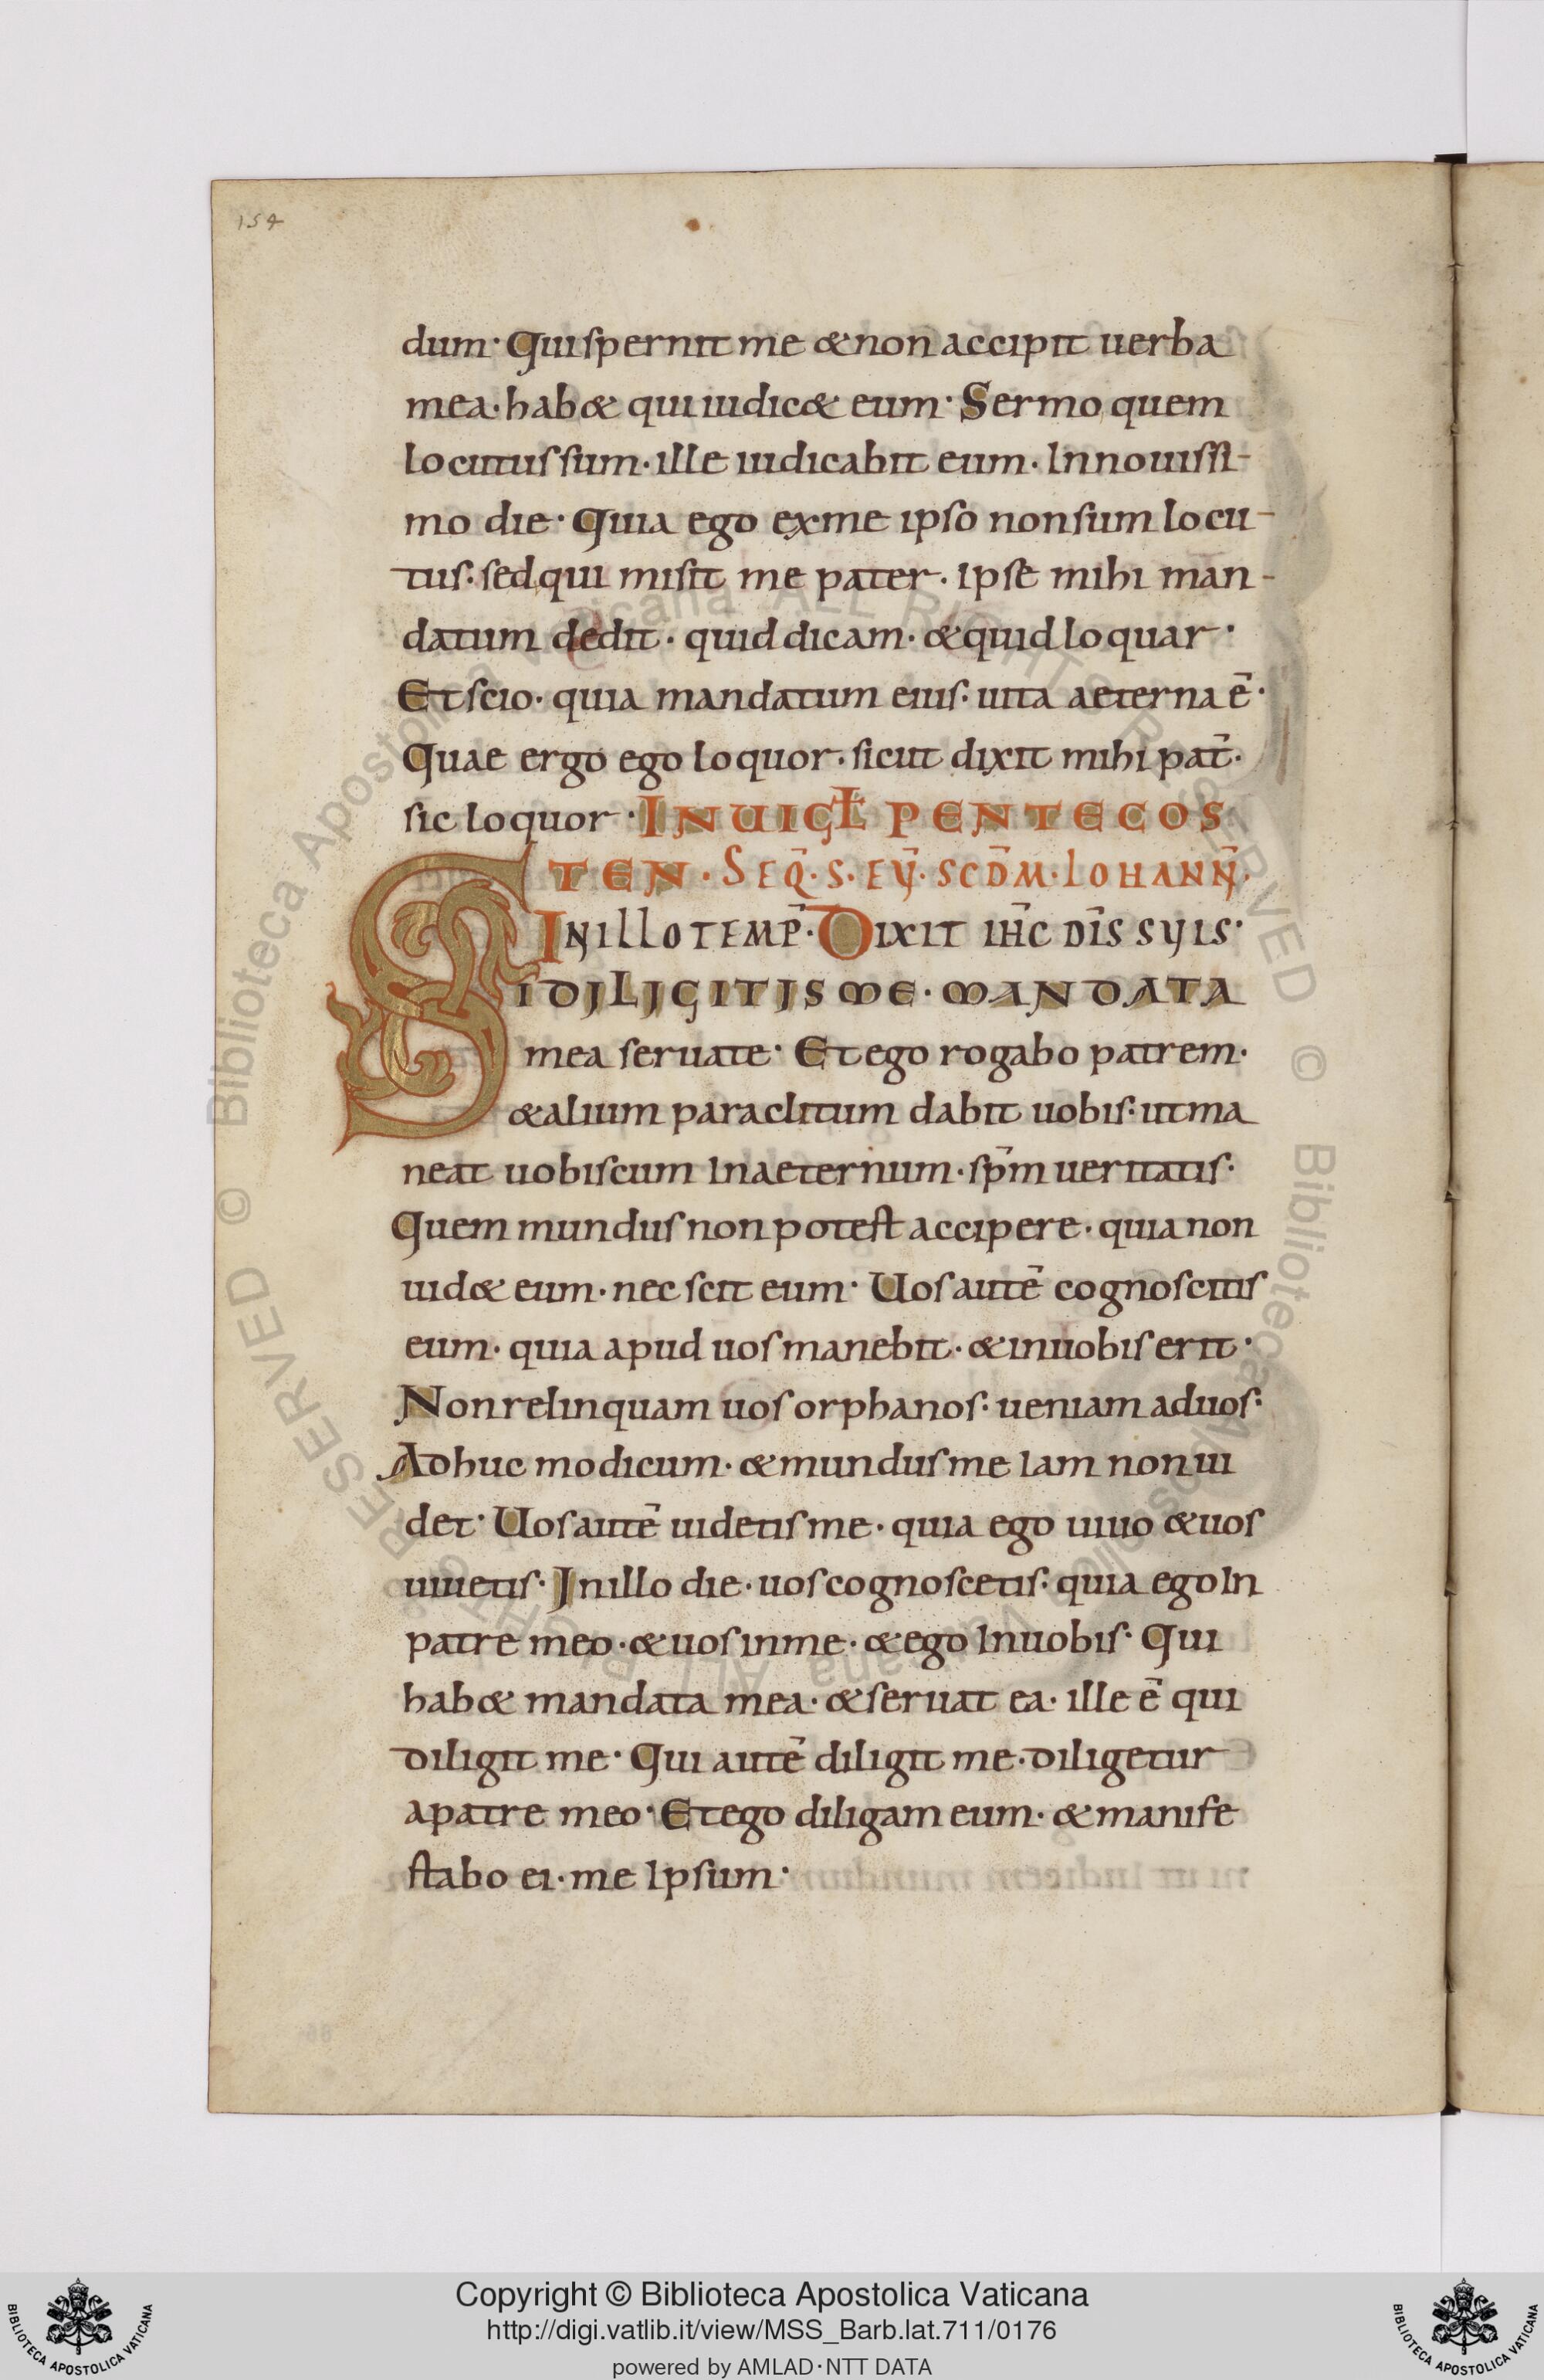 154
dum· Qui spernit me & non accipit uerba
mea· hab& qui iudic& eum· Sermo quem
locutus sum· ille iudicabit eum· In nouissi-
mo die· Quia ego ex me ipso non sum locu-
tus· sed qui misit me pater· ipse mihi man-
datum dedit· quid dicam· & quid loquar·
Et scio· quia mandatum eius· uita aeterna ē·
Quae ergo ego loquor· sicut dixit mihi pat̄·
sic loquor· IN UIGL̄ PENTECOS
TEN· SEQ̄· S· EV̄· SCD̄M· IOHANN̄·
IN ILLO TEMP̄· DIXIT IH̄C DIS̄ SUIS·
SI DILIGITIS ME· MANDATA
mea seruate· Et ego rogabo patrem·
& alium paraclitum dabit uobis· ut ma
neat uobiscum In aeternum· sp̄m ueritatis·
Quem mundus non potest accipere· quia non
uid& eum· nec scit eum· Uos autē cognoscitis
eum· quia apud uos manebit· & in uobis erit·
Non relinquam uos orphanos· ueniam ad uos·
Adhuc modicum· & mundus me Iam non ui
det· Uos autē uidetis me· quia ego uiuo & uos
uiuetis· In illo die· uos cognoscetis· quia ego In
patre meo· & uos in me· & ego In uobis· Qui
hab& mandata mea· & seruat ea· ille ē qui
diligit me· Qui autē diligit me· diligetur
a patre meo· Et ego diligam eum· & manife
stabo ei· me Ipsum·
Copyright © Biblioteca Apostolica Vaticana
http://digi.vatlib.it/view/MSS_Barb.lat.711/0176
powered by AMLAD·NTT DATA
BIBLIOTECA APOSTOLICA VATICANA
BIBLIOTECA APOSTOLICA VATICANA